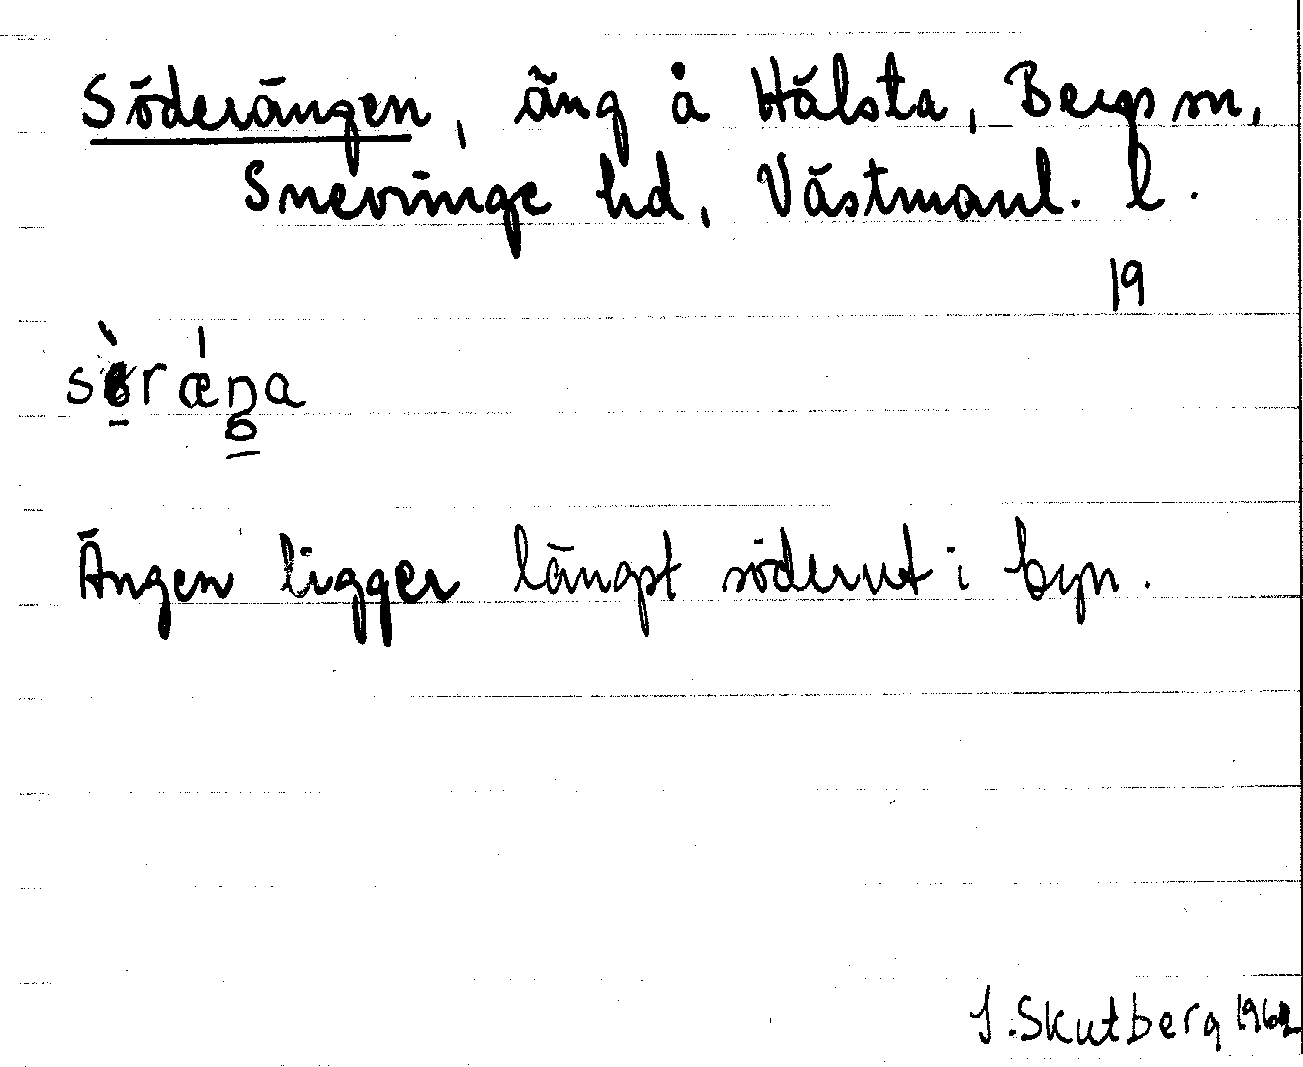 Söderängen, äng å Hälsta, Bergs sn,
Snevringe hd, Västmanl. l.
19
Ängen ligger längst söderut i byn.
J. Skutberg 1962